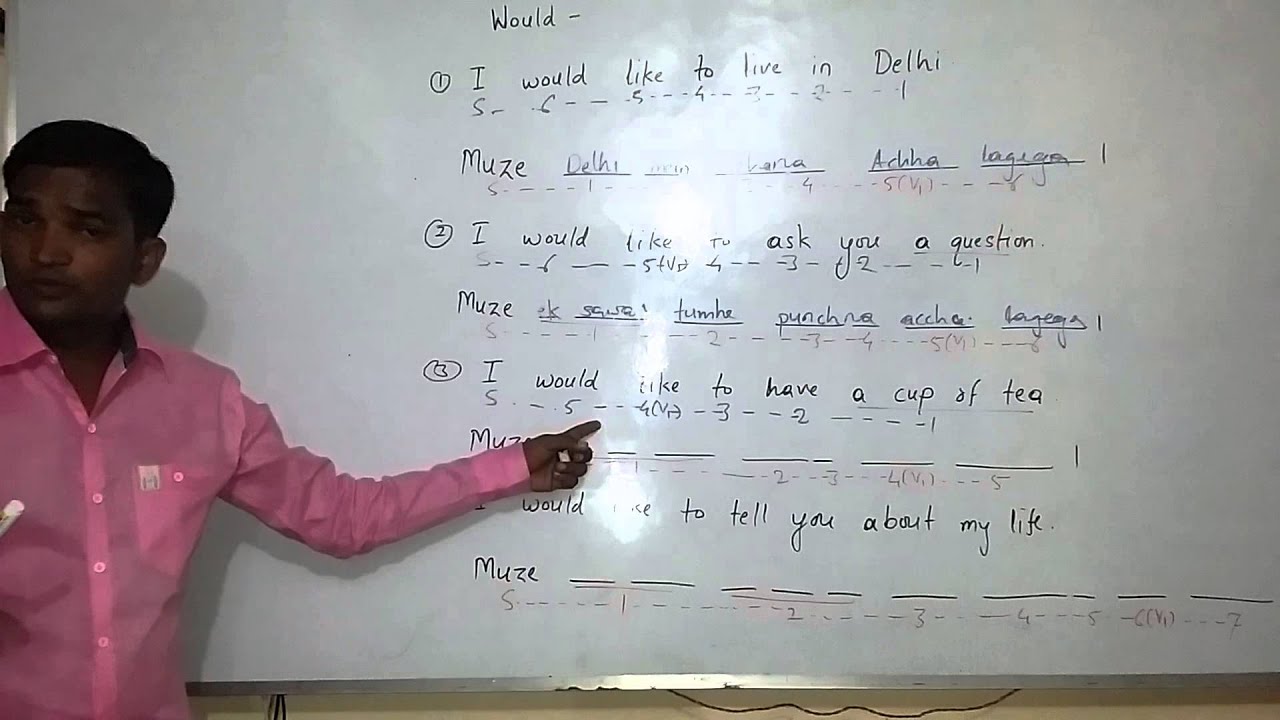 Would -
① I would like to live in Delhi
S - 6 - - - 5 - - - 4 - - - 3 - - - 2 - - - 1
Muze Delhi mein karna Achha lagega |
S - - - - 1 - - - - 4 - - - - 5(V1) - - - - 6
② I would like to ask you a question.
S - - 6 - - - 5(V1) - 4 - - - 3 - - 2 - - - - 1
Muze ek sawal tumhe punchna accha lagega |
S - - - - - 1 - - - - 2 - - - - 3 - - 4 - - - - 5(V1) - - - 6
③ I would like to have a cup of tea
S - - 5 - - - 4(V1) - 3 - - - 2 - - - - - 1
Muze __ __ __ __ __ __ |
1 - - - - - 2 - - 3 - - - 4(V1) - - - 5
I would like to tell you about my life.
Muze __ __ __ __ __ __ __ __ __ __
S - - - - - 1 - - - - - - 2 - - - - - 3 - - - - 4 - - - 5 - - 6(V1) - - - 7